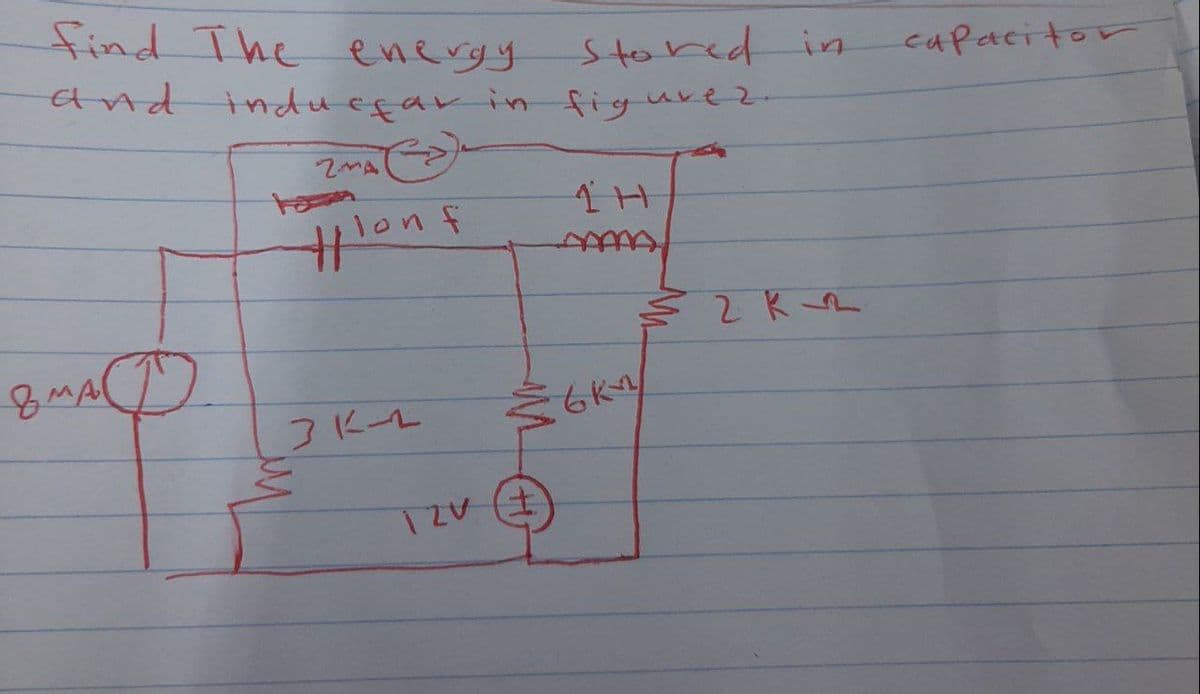 find The energy stored in capacitor
and inductar in figure 2.
2mA
10nf
1H
2 K Ω
8 MA
3 K Ω
6KΩ
12V